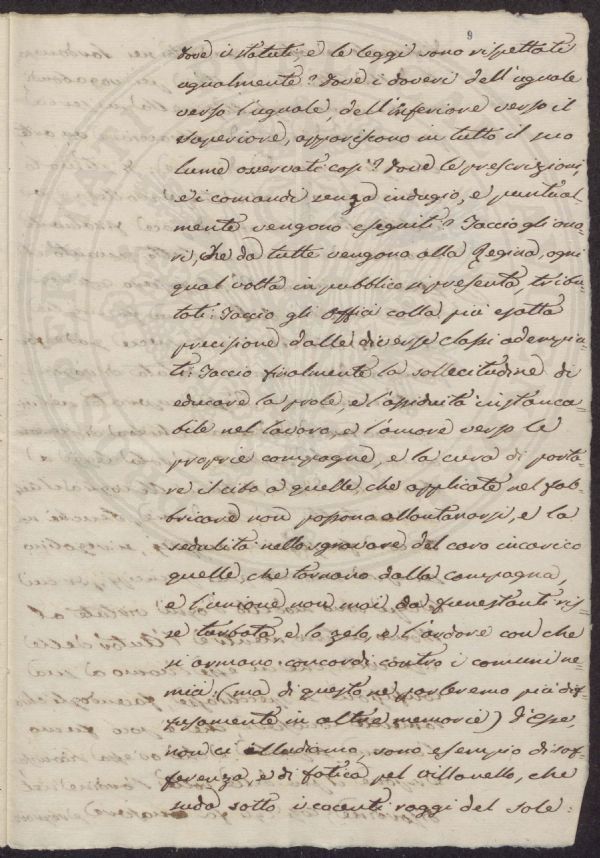 9
dove i statuti, e le leggi sono rispettate
ugualmente? dove i doveri dell'uguale
verso l'uguale, dell'inferiore verso il
superiore, appariscono in tutto il 
lume osservati così? dove le prescrizioni,
e i comandi senza indugio, e puntual-
mente vengono eseguiti? Taccio gli ono-
ri, che da tutte vengono alla Regina, ogni
qual volta in pubblico si presenta, tribu-
tati: Taccio gli offici colla più esatta
precisione dalle diverse classi adempiu-
ti: Taccio finalmente la sollecitudine di
educare la prole, e l'assiduità instanca-
bile nel lavoro, e l'amore verso le
proprie compagne, e la cura di porta-
re il cibo a quelle, che applicate nel fab-
bricare non possono allontanarsi, e la
sedulità nello sgravare del caro incarico
quelle, che tornano dalla campagna,
e l'unione non mai da funestanti ris-
se turbata, e lo zelo, e l'ardore con che
si armano concordi contro i comuni ne-
mici: (ma di questo ne parleremo più dif-
fusamente in altre memorie) d'Esse,
non ci illudiamo, sono esempio di sof-
ferenza, e di fatica pel villanello, che
suda sotto i cocenti raggi del sole-